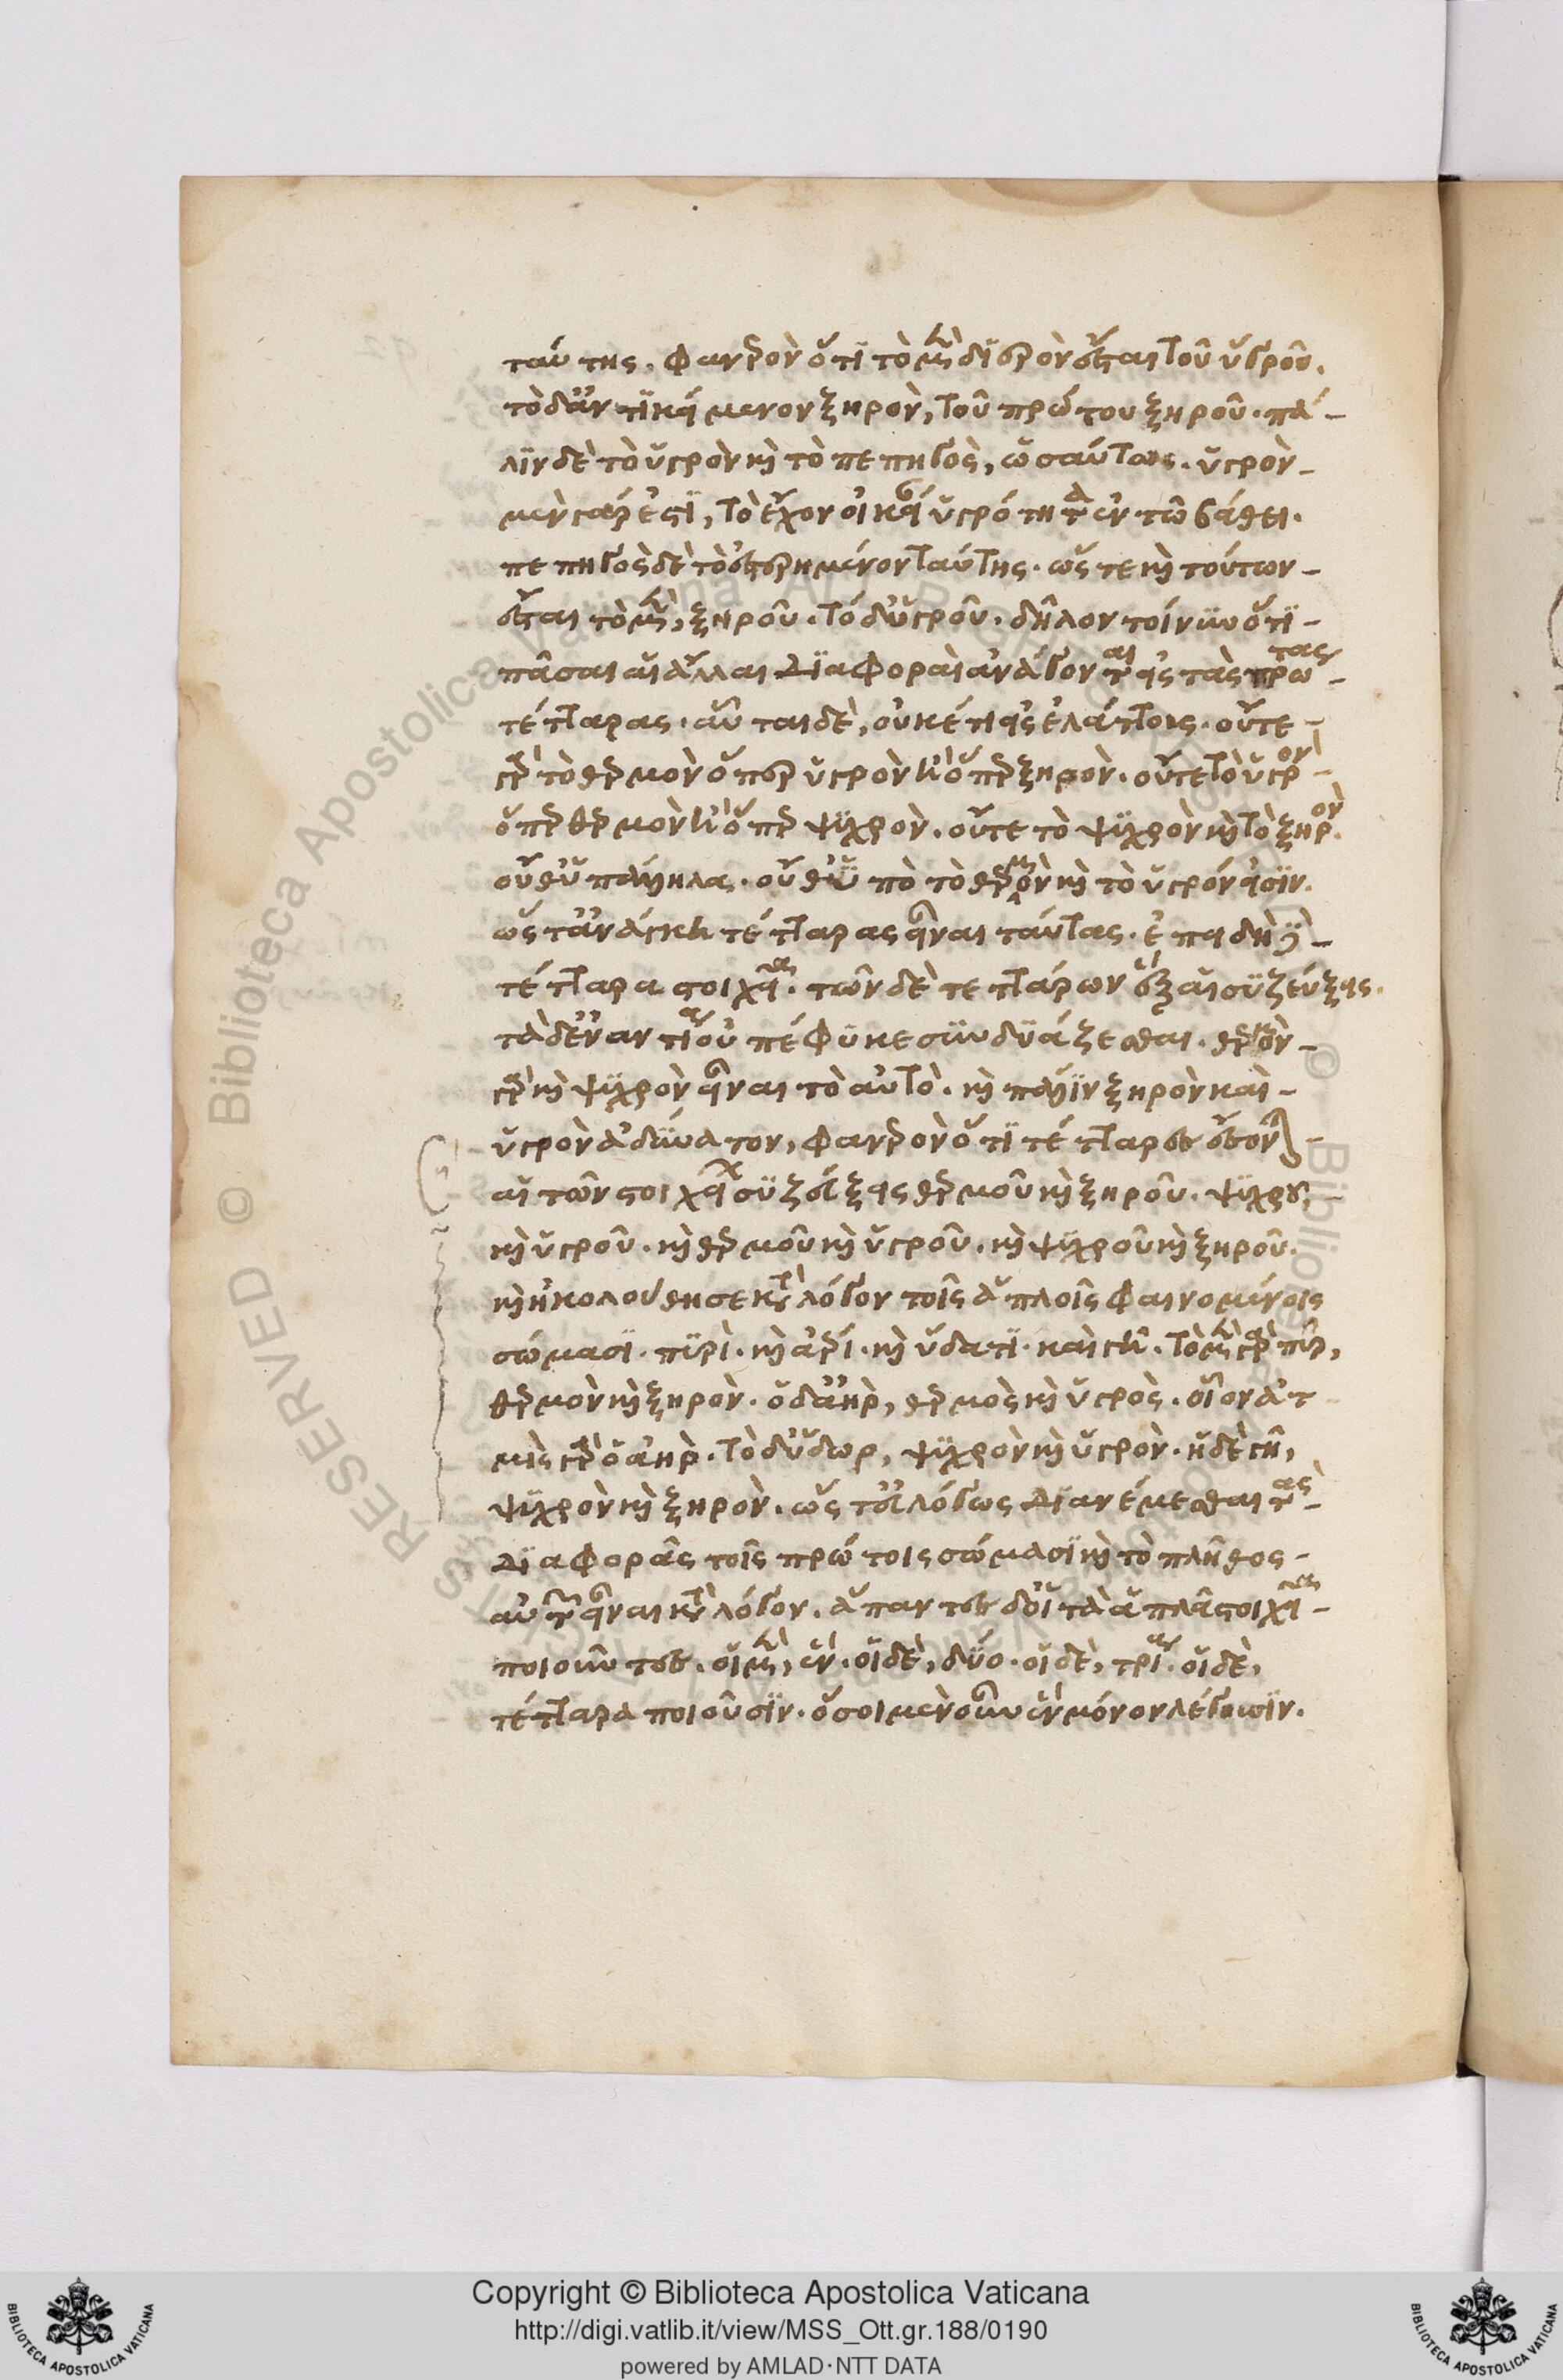 ταύτης. φανερὸν ὅτι τὸ μὲν διερὸν ἔσται τοῦ ὑγροῦ.
τὸ δ' ἀντικείμενον ξηρὸν, τοῦ πρώτου ξηροῦ. πά-
λιν δὲ τὸ ὑγρὸν καὶ τὸ πεπηγὸς, ὡσαύτως. ὑγρὸν
μὲν γάρ ἐστι, τὸ ἔχον οἰκείαν ὑγρότητα ἐν τῶ βάθει.
πεπηγὸς δὲ τὸ ἐστερημένον ταύτης. ὥστε καὶ τούτων
ἔσται τὸ μὲν, ξηροῦ. τὸ δ' ὑγροῦ. δῆλον τοίνυν ὅτι
πᾶσαι αἱ ἄλλαι διαφοραὶ ἀνάγονται εἰς τὰς πρώτας
τέτταρας. αὗται δὲ, οὐκέτι εἰς ἐλάττους. οὔτε
γὰρ τὸ θερμὸν ὅπερ ὑγρὸν ἢ ὅπερ ξηρὸν. οὔτε τὸ ὑγρὸν
ὅπερ θερμὸν ἢ ὅπερ ψυχρὸν. οὔτε τὸ ψυχρὸν καὶ τὸ ξηρὸν.
οὔθ' ὑπάλληλα. οὔθ' ὑπὸ τὸ θερμὸν καὶ τὸ ὑγρόν εἰσιν.
ὥστ' ἀνάγκη τέτταρας εἶναι ταύτας. ἐπειδὴ δὲ
τέτταρα στοιχεῖα. τῶν δὲ τεττάρων ἓξ αἱ συζεύξεις.
τὰ δ' ἐναντία οὐ πέφυκε συνδυάζεσθαι. θερμὸν
γὰρ καὶ ψυχρὸν εἶναι τὸ αὐτὸ. καὶ πάλιν ξηρὸν καὶ
ὑγρὸν ἀδύνατον, φανερὸν ὅτι τέτταρες ἔσονται
αἱ τῶν στοιχείων συζεύξεις θερμοῦ καὶ ξηροῦ. ψυχροῦ,
καὶ ὑγροῦ. καὶ θερμοῦ καὶ ὑγροῦ. καὶ ψυχροῦ καὶ ξηροῦ.
καὶ ἠκολούθησε κατὰ λόγον τοῖς ἁπλοῖς φαινομένοις
σώμασι. πυρὶ. καὶ ἀέρι. καὶ ὕδατι. καὶ γῆ. τὸ μὲν γὰρ πῦρ,
θερμὸν καὶ ξηρὸν. ὁ δ' ἀὴρ, θερμὸς καὶ ὑγρὸς. οἷον ἀτ
μὶς γὰρ ὁ ἀὴρ. τὸ δ' ὕδωρ, ψυχρὸν καὶ ὑγρὸν. ἡ δὲ γῆ,
ψυχρὸν καὶ ξηρὸν. ὥστ' εὐλόγως διανέμεσθαι τὰς
διαφορὰς τοῖς πρώτοις σώμασι καὶ τὸ πλῆθος
αὐτῶν εἶναι κατὰ λόγον. ἅπαντες δ' οἱ τὰ ἁπλᾶ στοιχεῖα
ποιοῦντες. οἱ μὲν, ἓν. οἱ δὲ, δύο. οἱ δὲ, τρία. οἱ δὲ,
τέτταρα ποιοῦσιν. ὅσοι μὲν οὖν ἓν μόνον λέγουσιν.
Copyright © Biblioteca Apostolica Vaticana
http://digi.vatlib.it/view/MSS_Ott.gr.188/0190
powered by AMLAD·NTT DATA